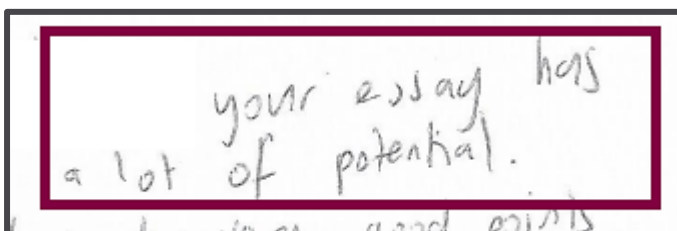 your essay has
a lot of potential.
good points